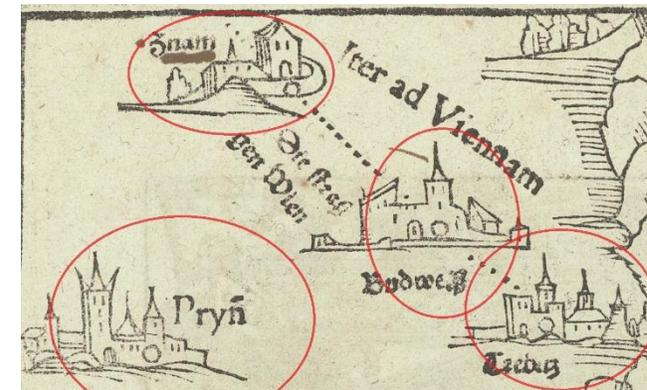 Znam
Iter ad Viennam
Die straß
gen Wien
Budweiß
Pryñ
Trebitz